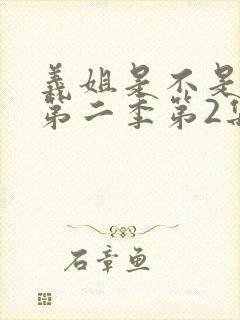 義姐是不是
第二季第2集
石章鱼